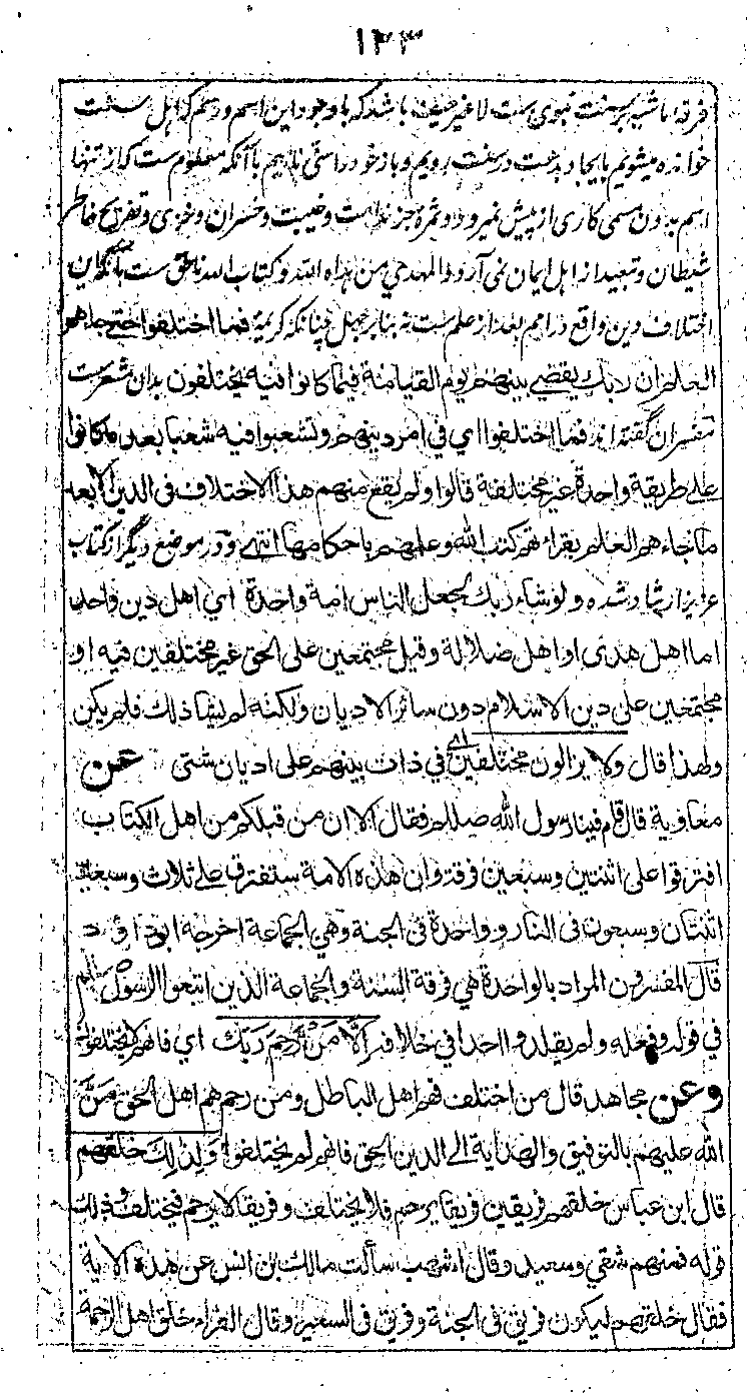 ۱۳۳
فرقه ناشیه بر سنت نبوی ست لا غیر حیف باشد که با وجود این اسم و رسم که اهل سنت
خوانده میشویم بایجاد بدعت در سنت رویم و باز خود را سنی نامیم با آنکه معلوم ست که از تنها
اسم بدون مسمی کاری از پیش نمیرود و ثمره جز ندامت و خیبت و خسران و خزی و تفریح خاطر
شیطان و تبعید از اهل ایمان نمی آرد و المهدي من هداه الله و کتاب الله ناطق ست بآنکه این
اختلاف دین واقع در امم بعد از علم ست نه بنا بر جهل چنانکه کریمهٔ فما اختلفوا حتی جاءهم
العلم ان ربك يقضي بينهم يوم القيامة فيما كانوا فيه يختلفون بدان مشعرست
مفسران گفته اند فما اختلفوا اي في امر دينهم وتشعبوا فيه شعبا بعد ما كانوا
على طريقة واحدة غير مختلفة قالوا ولم يقع منهم هذا الاختلاف في الدين الا بعد
ما جاءهم العلم بقراءتهم كتب الله وعلمهم باحكامها انتهى و در موضع دیگر از کتاب
عزیز ارشاد شده ولو شاء ربك لجعل الناس امة واحدة اي اهل دين واحد
اما اهل هدى او اهل ضلالة وقيل مجتمعين على الحق غير مختلفين فيه او
مجتمعين على دين الاسلام دون سائر الاديان ولكنه لم يشأ ذلك فلم يكن
ولهذا قال ولا يزالون مختلفين اي في ذات بينهم على اديان شتى عن
معاوية قال قام فينا رسول الله صللم فقال الا ان من قبلكم من اهل الكتاب
افترقوا على اثنتين وسبعين فرقة وان هذه الامة ستفترق على ثلاث وسبعين
اثنتان وسبعون في النار وواحدة في الجنة وهي الجماعة اخرجه ابوداؤد
قال المفسرون المراد بالواحدة هي فرقة السنة والجماعة الذين اتبعوا الرسول صللم
في قوله وفعله ولم يقلدوا احدا في خلافه الا من رحم ربك اي فانهم لم يختلفوا
وعن مجاهد قال من اختلف فهم اهل الباطل ومن رحم هم اهل الحق من
الله عليهم بالتوفيق والهداية الى الدين الحق فانهم لم يختلفوا ولذلك خلقهم
قال ابن عباس خلقهم فريقين فريقا يرحم فلا يختلف وفريقا لا يرحم فيختلف وذلك
قوله فمنهم شقي وسعيد وقال اشهب سألت مالك بن انس عن هذه الاية
فقال خلقهم ليكون فريق في الجنة وفريق في السعير وقال الفراء خلق اهل الرحمة